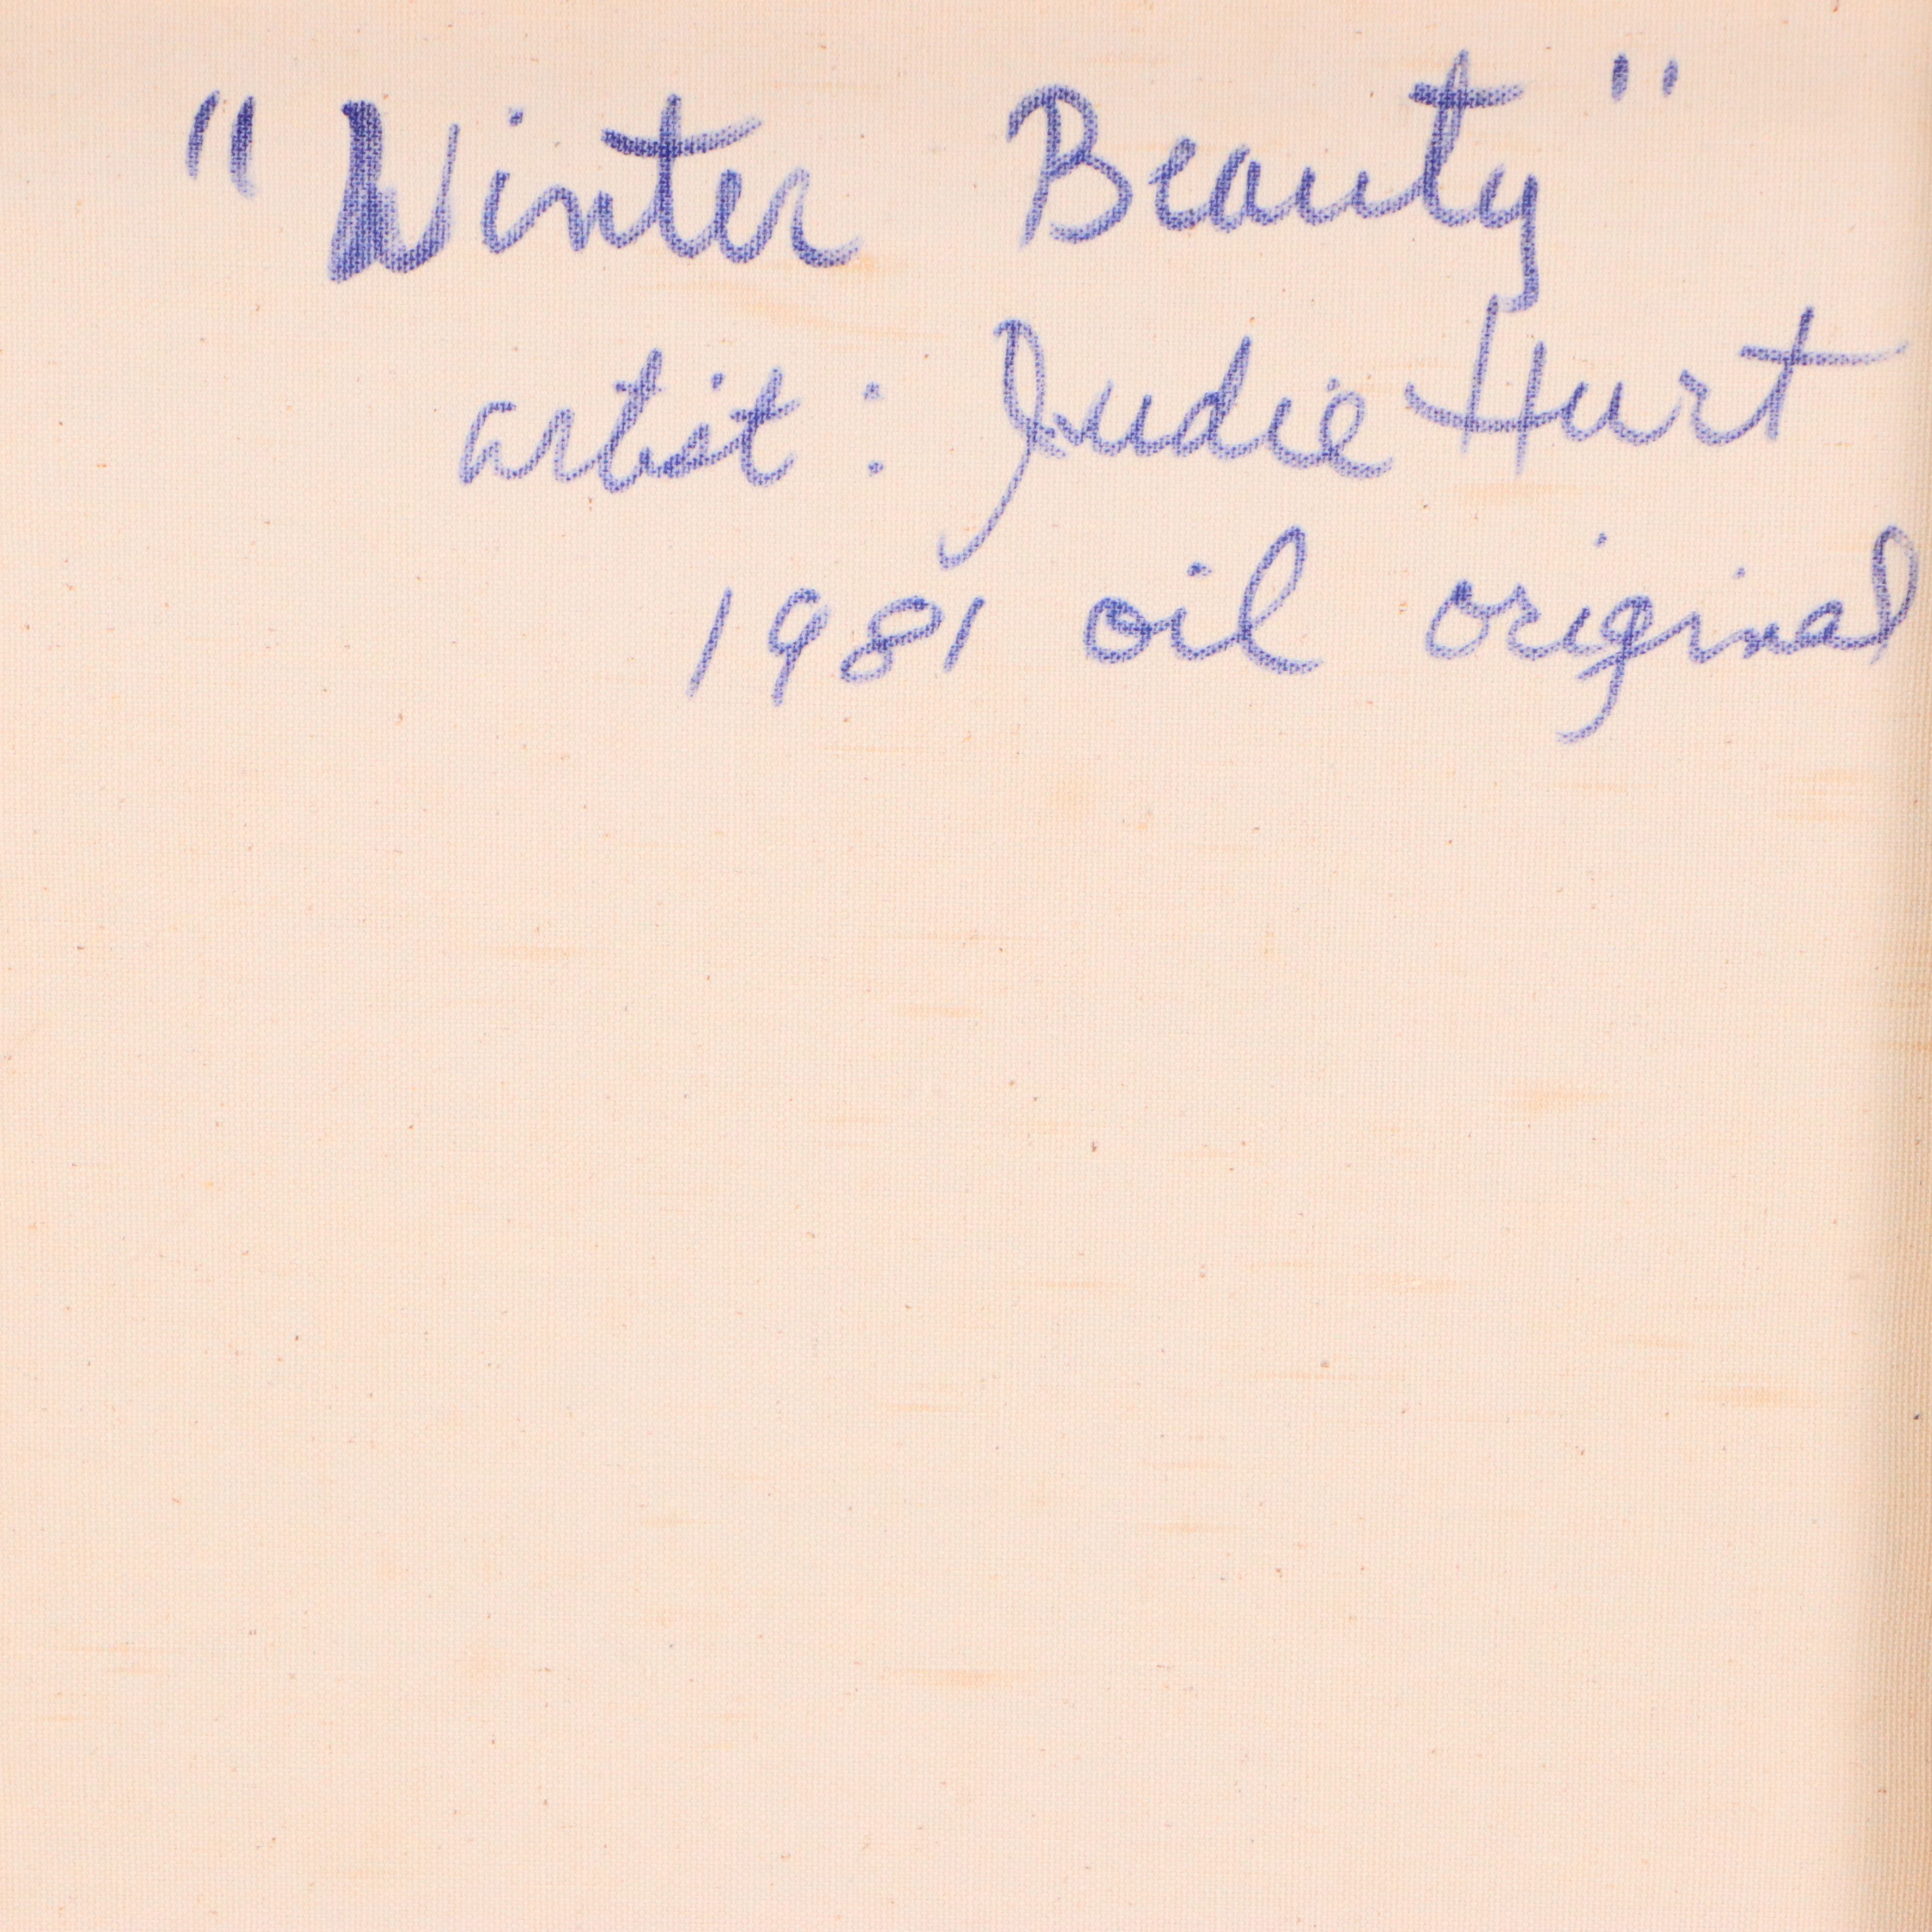 "Winter Beauty"
artist: Judie Hurt
1981 oil original